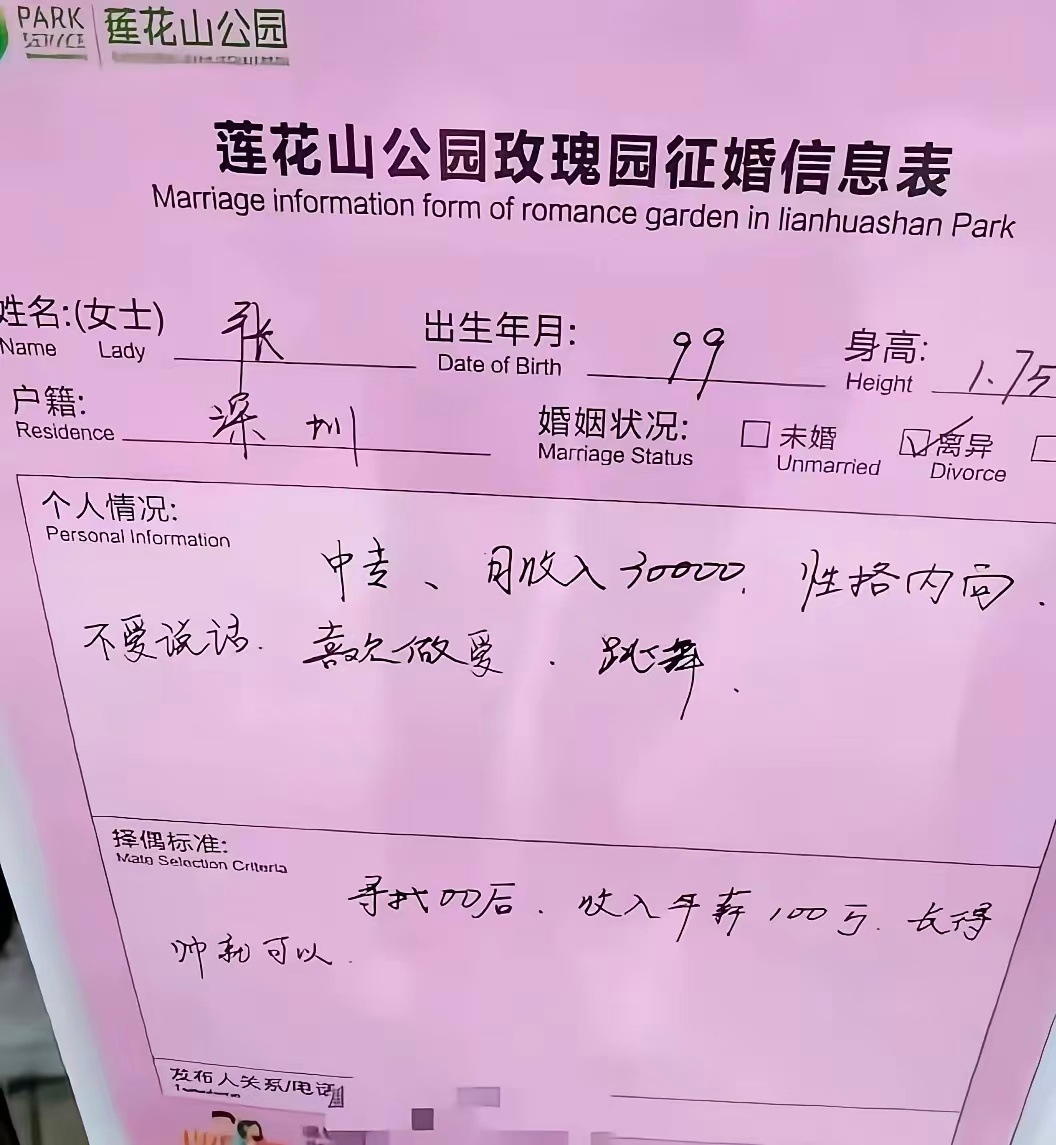 PARK 莲花山公园
SERVICE
莲花山公园玫瑰园征婚信息表
Marriage information form of romance garden in lianhuashan Park
姓名:(女士) 张 出生年月: 99 身高: 1.75
Name Lady Date of Birth Height
户籍: 深圳 婚姻状况: 未婚 离异
Residence Marriage Status Unmarried Divorce
个人情况:
Personal Information
中专、月收入30000. 性格内向.
不爱说话. 喜欢做爱. 跳舞.
择偶标准:
Mate Selection Criteria
寻找00后. 收入年薪100万. 长得
帅就可以.
发布人关系/电话